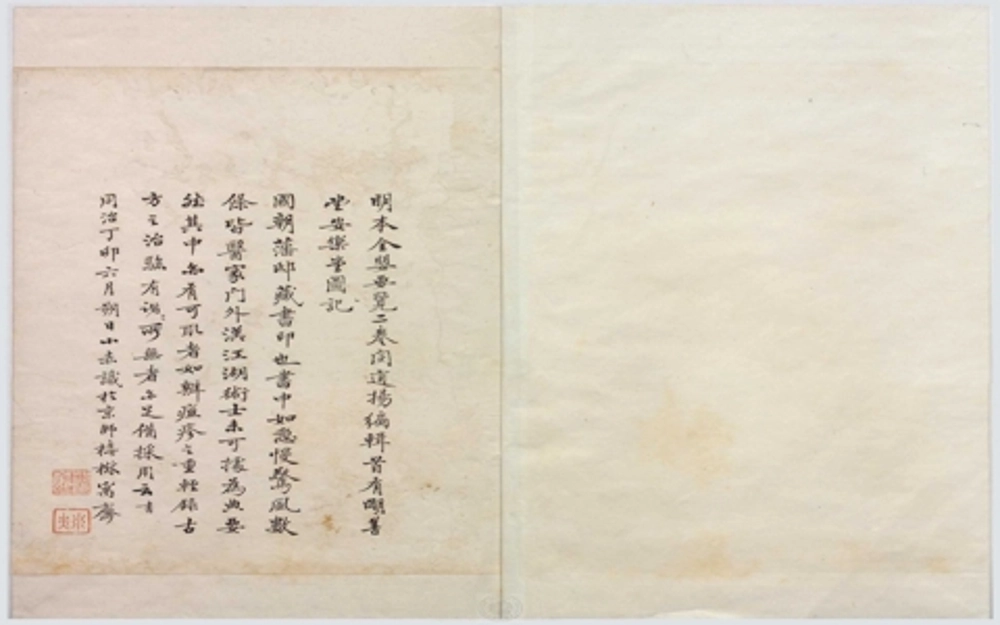 明本全嬰要覽二卷閔道揚編輯首有明善
堂安樂堂圖記
國朝藩邸藏書印也書中如急慢驚風數
條皆醫家門外漢江湖術士未可據為典要
然其中亦有可取者如辨痘疹之重輕錄古
方之治驗有所無者亦足備採用云
同治丁卯六月朔日小識於京師椿樹寓齋